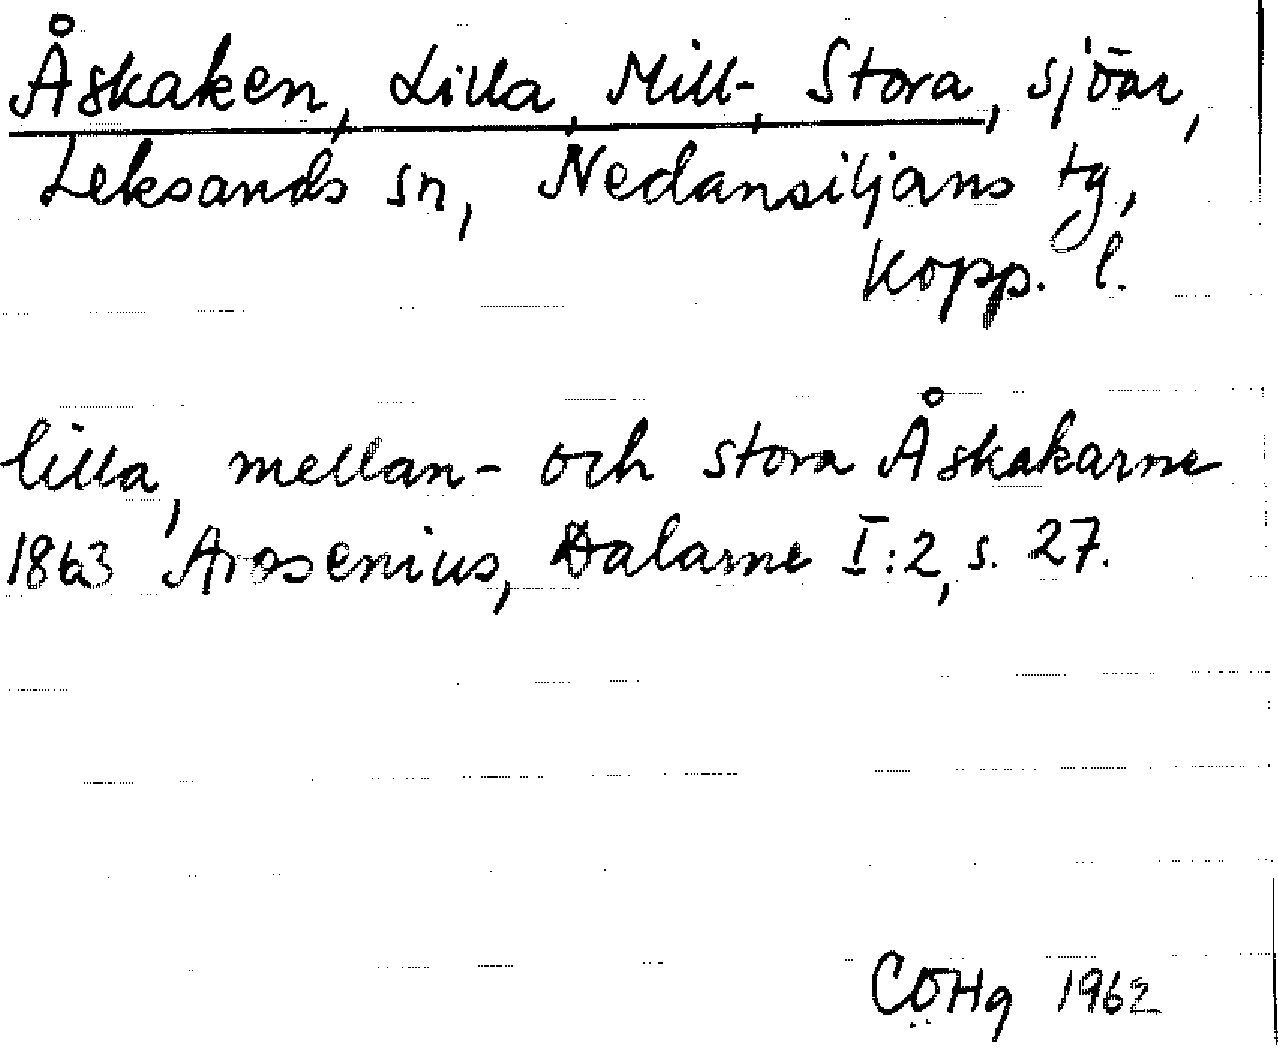 Åskaken, Lilla, Mill-, Stora, sjöar,
Leksands sn, Nedansiljans tg,
Kopp. l.
lilla, mellan- och stora Åskakarne
1863 Arosenius, Dalarne I:2, s. 27.
CÖHg 1962